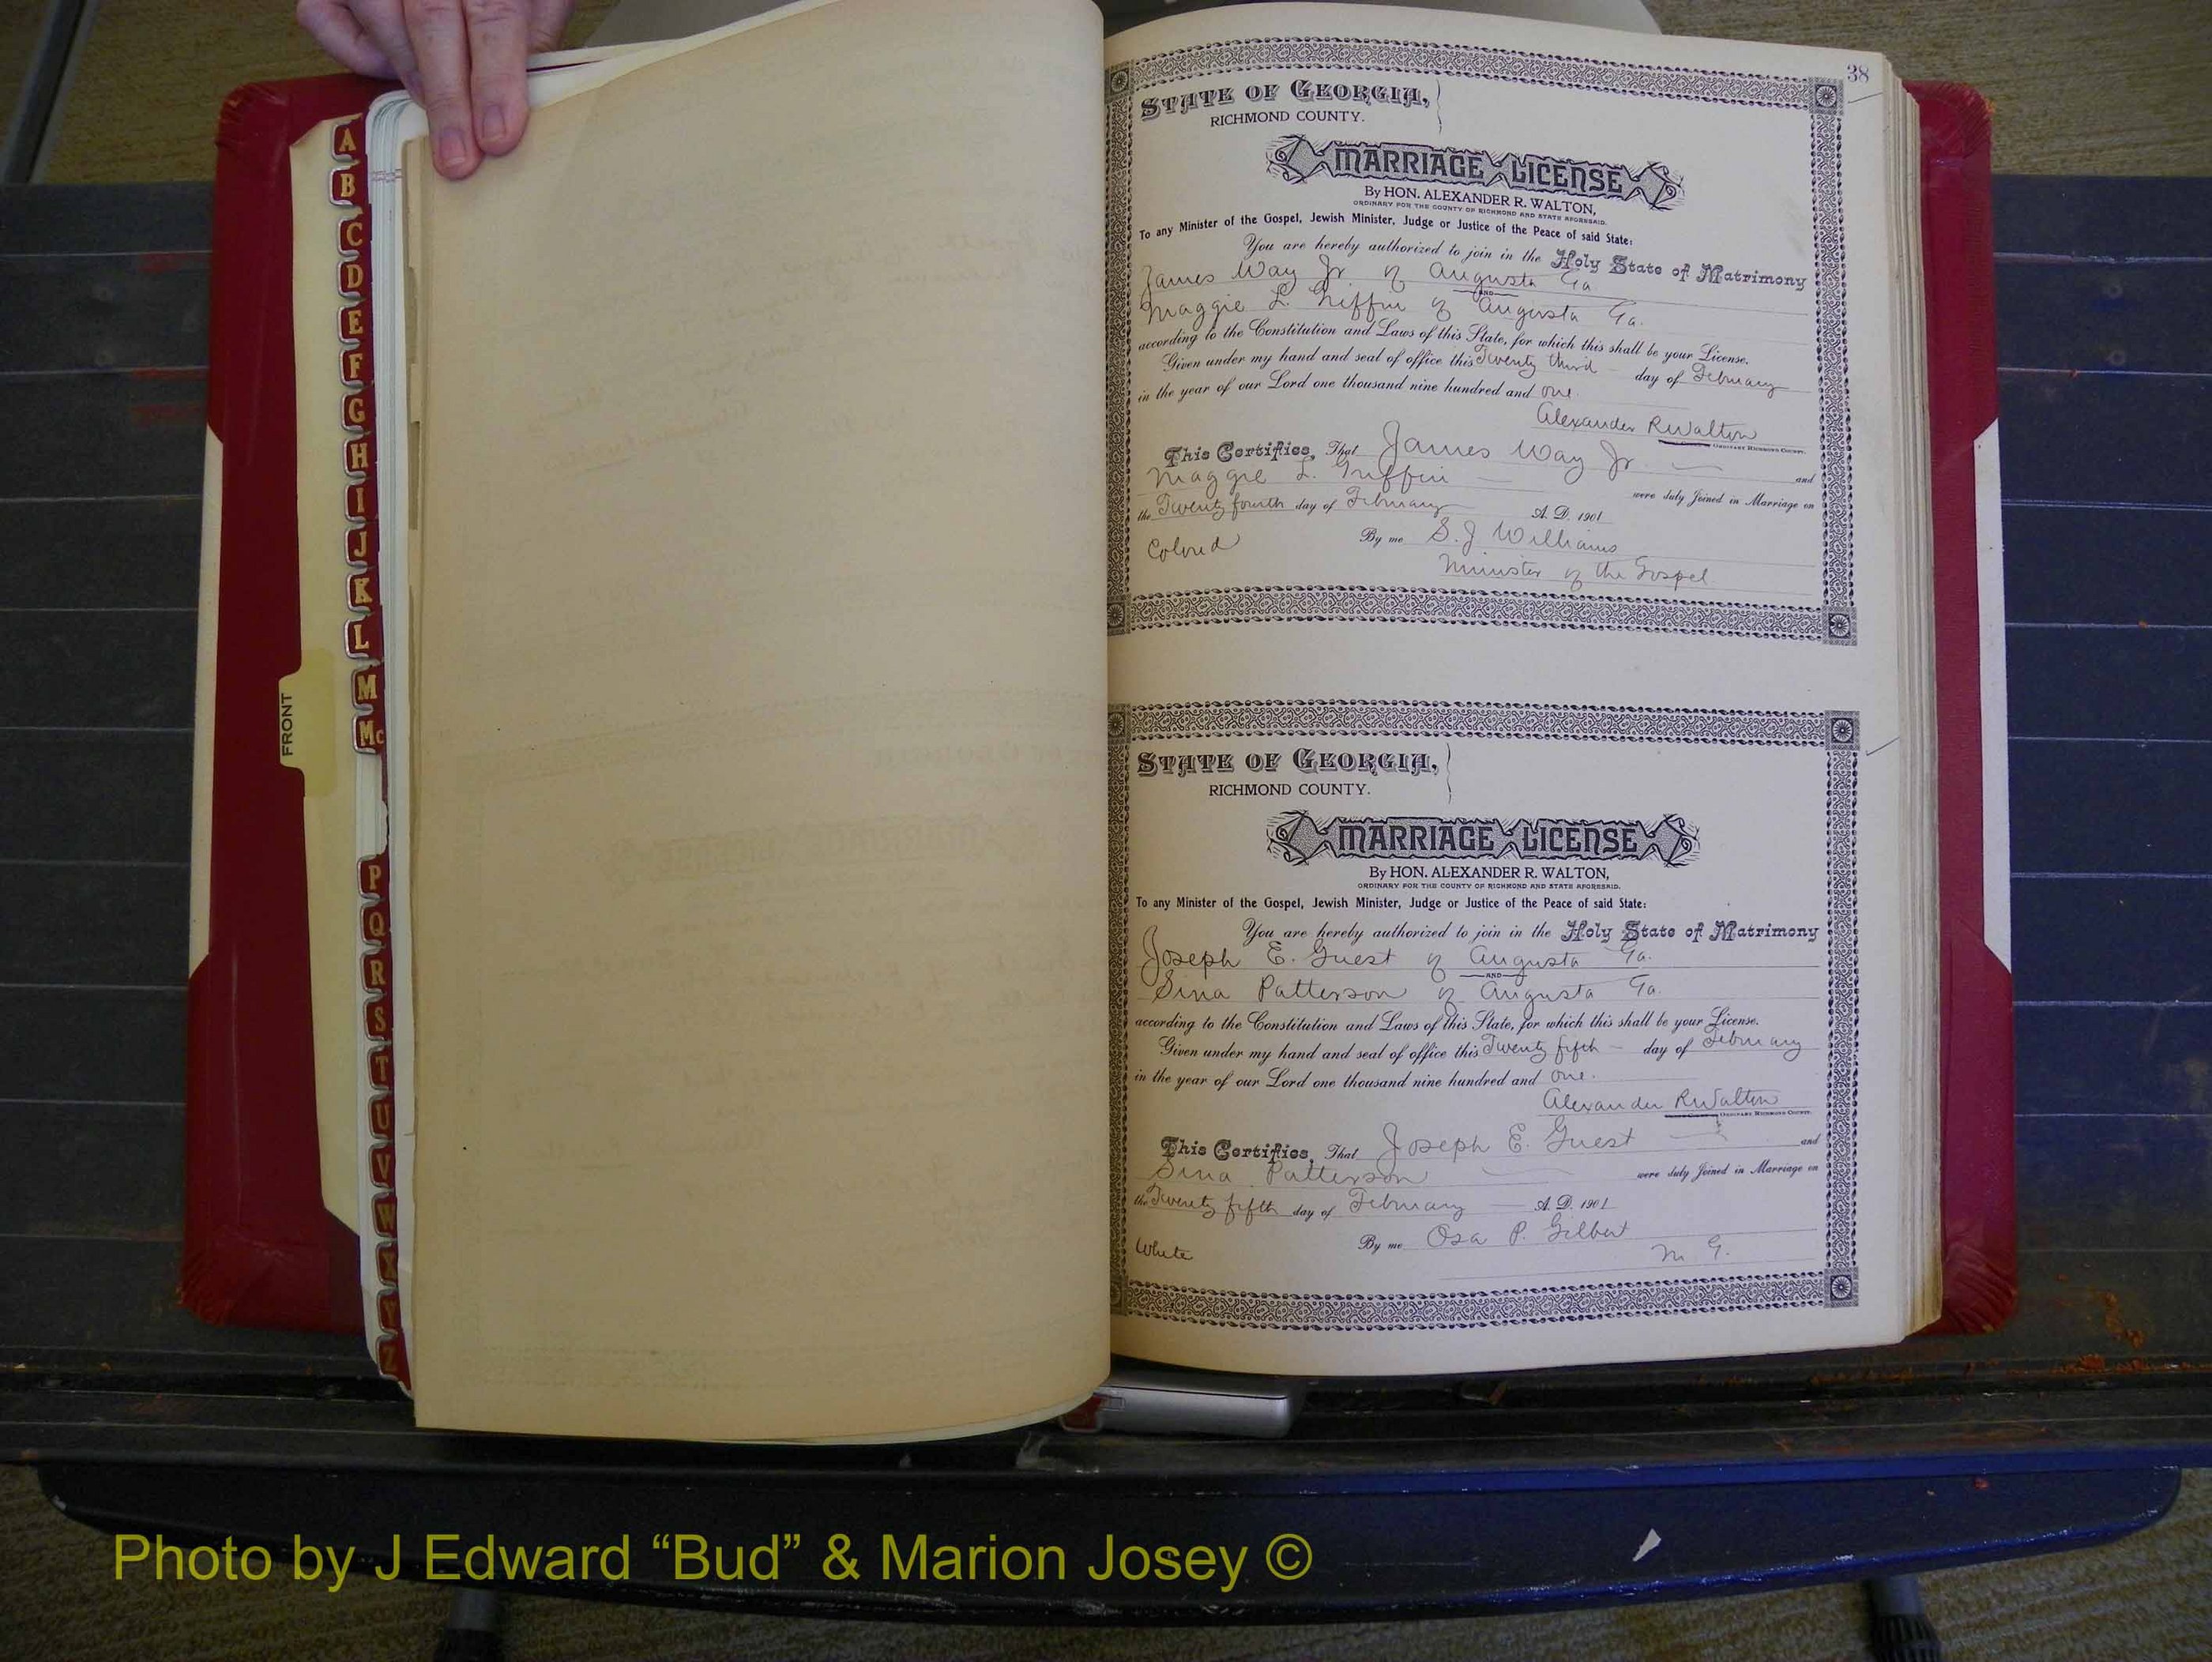 A
B
C
D
E
F
G
H
I
J
K
L
M
Mc
P
Q
R
S
T
U
V
W
X
Y
Z
FRONT
38
STATE OF GEORGIA,
RICHMOND COUNTY.
MARRIAGE LICENSE
By HON. ALEXANDER R. WALTON,
ORDINARY FOR THE COUNTY OF RICHMOND AND STATE AFORESAID.
To any Minister of the Gospel, Jewish Minister, Judge or Justice of the Peace of said State:
You are hereby authorized to join in the Holy State of Matrimony
James Way Jr of Augusta Ga
AND
Maggie L. Griffin of Augusta Ga.
according to the Constitution and Laws of this State, for which this shall be your License.
Given under my hand and seal of office this Twenty third day of February
in the year of our Lord one thousand nine hundred and one.
Alexander R Walton
ORDINARY RICHMOND COUNTY.
This Certifies, That James Way Jr. and
Maggie L. Griffin were duly Joined in Marriage on
the Twenty fourth day of February A. D. 1901
Colored By me S. J Williams
Minister of the Gospel
STATE OF GEORGIA,
RICHMOND COUNTY.
MARRIAGE LICENSE
By HON. ALEXANDER R. WALTON,
ORDINARY FOR THE COUNTY OF RICHMOND AND STATE AFORESAID.
To any Minister of the Gospel, Jewish Minister, Judge or Justice of the Peace of said State:
You are hereby authorized to join in the Holy State of Matrimony
Joseph E. Guest of Augusta Ga.
AND
Sina Patterson of Augusta Ga.
according to the Constitution and Laws of this State, for which this shall be your License.
Given under my hand and seal of office this Twenty fifth day of February
in the year of our Lord one thousand nine hundred and one.
Alexander R Walton
ORDINARY RICHMOND COUNTY.
This Certifies, That Joseph E. Guest and
Sina Patterson were duly Joined in Marriage on
the Twenty fifth day of February A. D. 1901
White By me Osa P. Gilbert
M. G.
Photo by J Edward “Bud” & Marion Josey ©